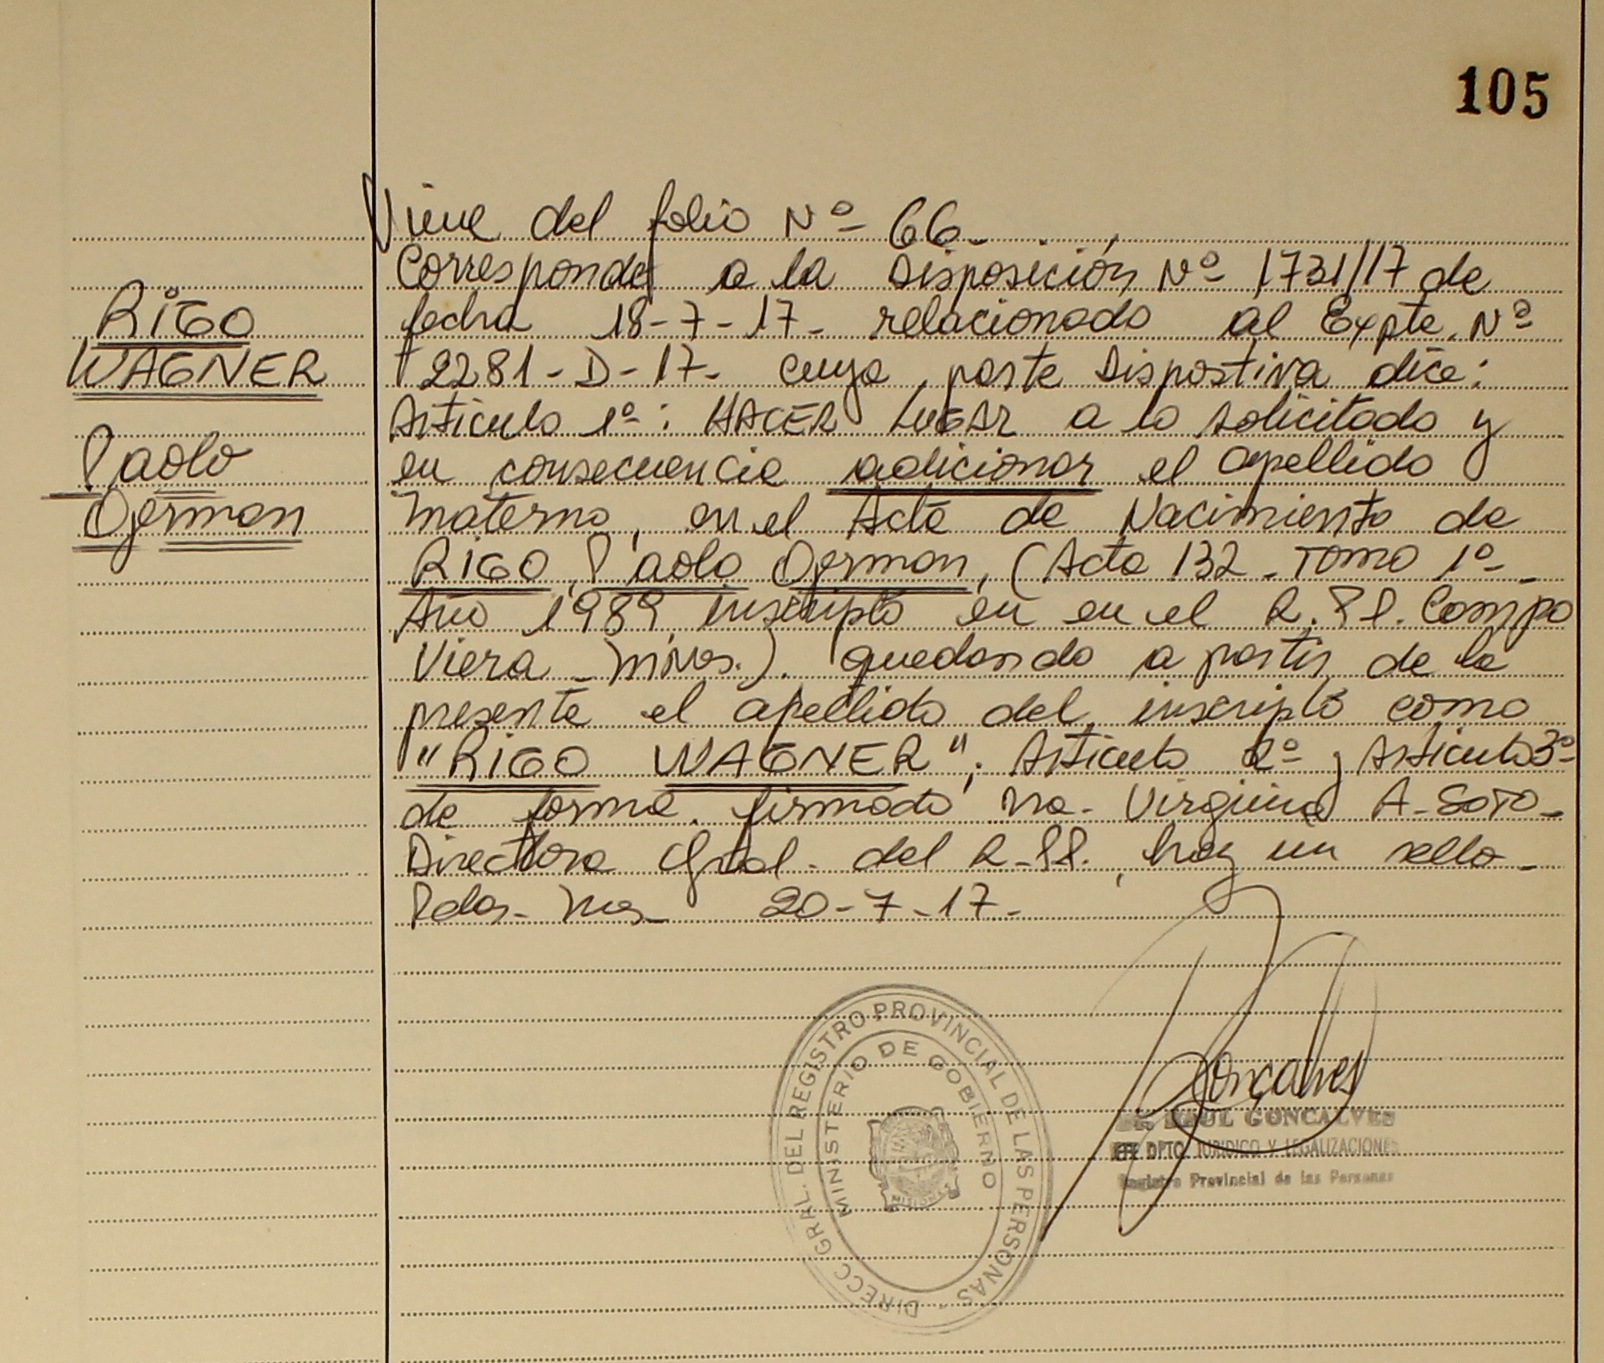 105
Viene del folio Nº 66-
Corresponde a la Disposición Nº 1731/17 de
fecha 18-7-17- relacionado al Expte. Nº
2281-D-17- cuya parte Dispostiva dice:
Artículo 1º: HACER LUGAR a lo solicitado y
en consecuencia adicionar el apellido
materno, en el Acta de Nacimiento de
RIGO, Paolo German, (Acta 132 - Tomo 1º-
Año 1989, inscripto en en el R.PP. Campo
Viera - Mnes.). quedando a partir de la
presente el apellido del inscripto como
"RIGO WAGNER"; Artículo 2º y Artículo 3º
de forma. firmado Virginia A- SOTO-
Directora Gral- del R-PP. hay un sello-
Pdas- Mns- 20-7-17-
RIGO
WAGNER
Paolo
German
DIRECC. GRAL. DEL REGISTRO PROVINCIAL DE LAS PERSONAS -
MINISTERIO DE GOBIERNO
MISIONES
Goncalves
RAUL GONCALVES
JEFE DPTO. JURIDICO Y LEGALIZACIONES
Registro Provincial de las Personas